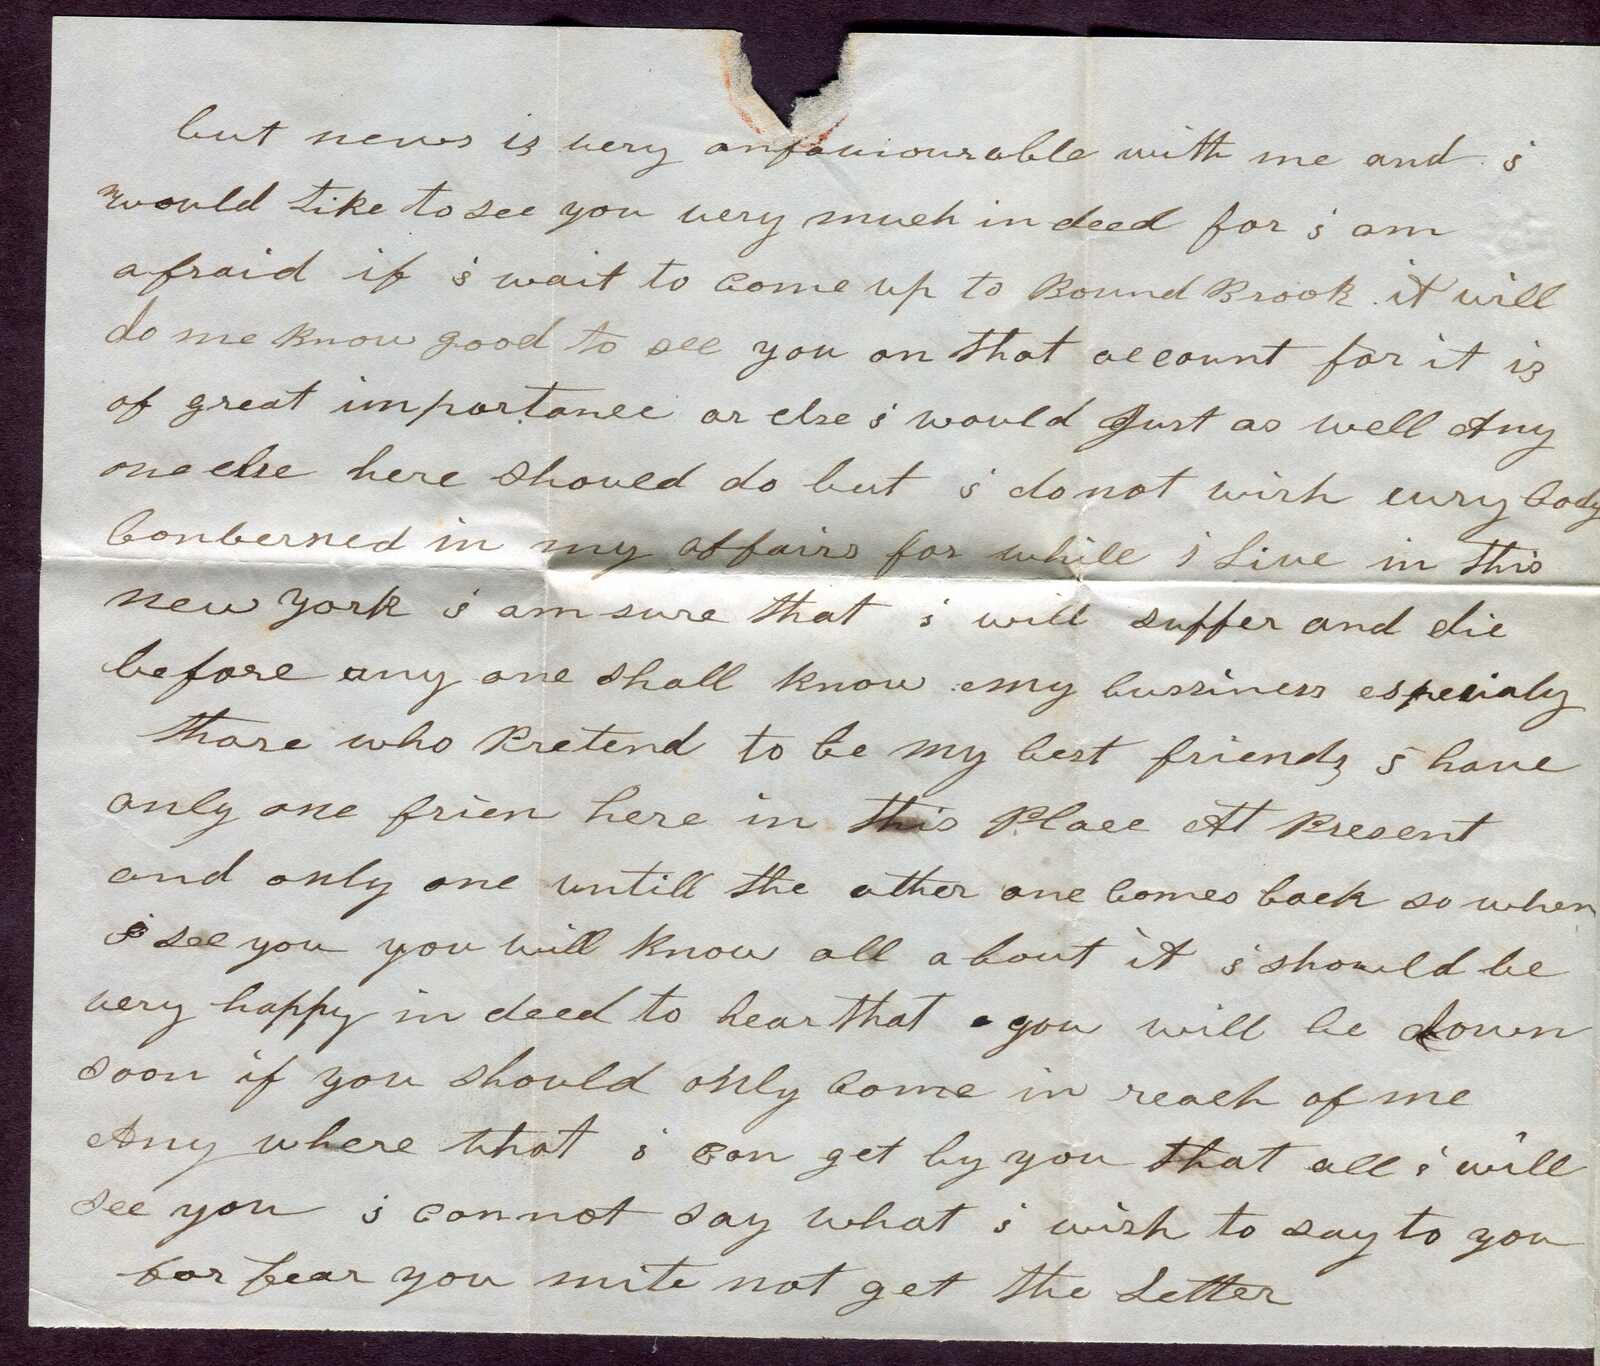 but news is very onfaviourable with me and i
would like to see you very much in deed for i am
afraid if i wait to come up to Bound Brook it will
do me know good to see you on that account for it is
of great importance or else i would Just as well Any
one else here should do but i do not wish evry body
Conberned in my affairs for while i Live in this
new york i am sure that i will suffer and die
before any one shall know my bussiness especialy
those who Pretend to be my best friends i have
only one frien here in this Place At Present
and only one untill the other one Comes back so when
i see you you will know all about it i should be
very happy in deed to hear that you will be down
soon if you should only Come in reach of me
Any where that i can get by you that all i will
see you i cannot say what i wish to say to you
for fear you mite not get the Letter